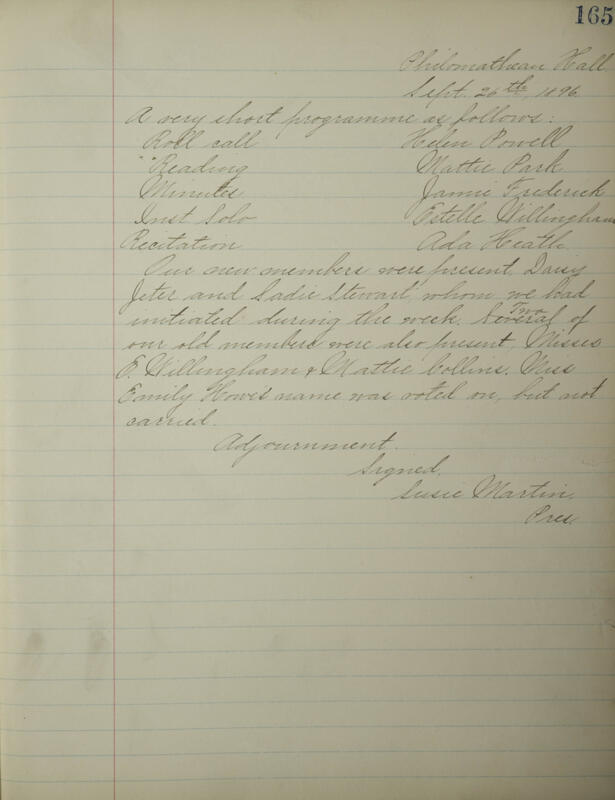 165
Philomathean Hall
Sept. 26th, 1896
A very short programme as follows:
Roll call Helen Powell
" Reading Mattie Park
Minutes Jamie Frederick
Inst Solo Estelle Willingham
Recitation Ada Heath
Our new members were present, Daisy
Jeter and Sadie Stewart, whom we had
initiated during the week. Several Two of
our old members were also present, Misses
E. Willingham & Mattie Collins. Miss
Emily Howe's name was voted on, but not
carried.
Adjournment.
Signed,
Susie Martin,
Pres.